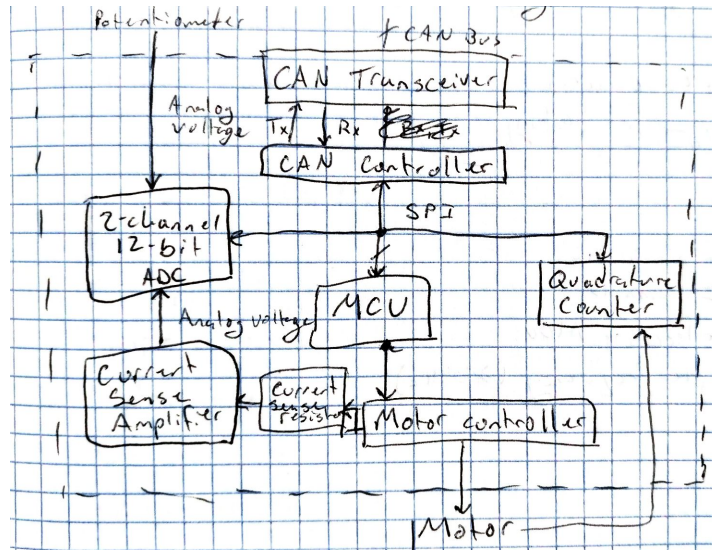 Potentiometer
CAN Bus
CAN Transceiver
Analog
voltage
Tx
Rx
CAN Controller
SPI
2-channel
12-bit
ADC
Quadrature
Counter
MCU
Analog voltage
Current
Sense
Amplifier
Current
sense
resistor
Motor controller
Motor